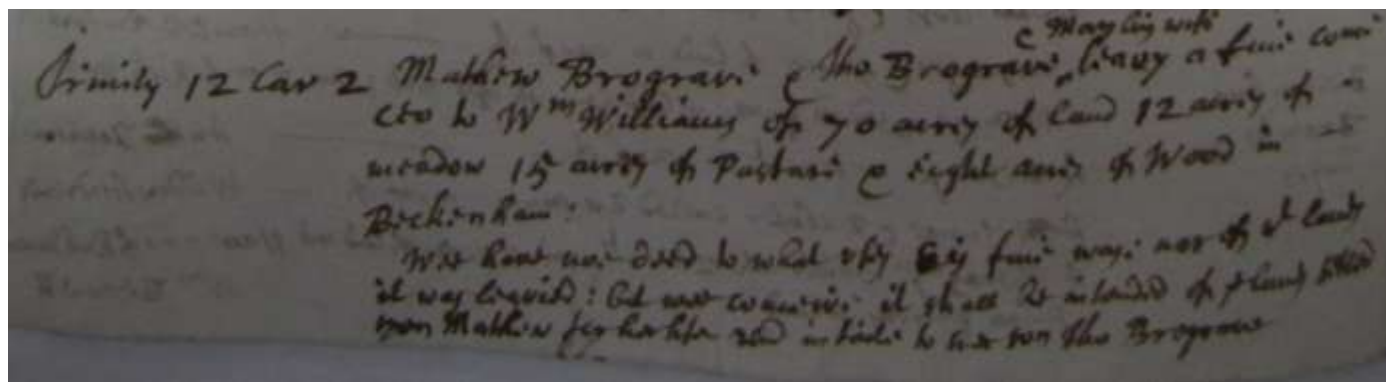 & Mary his wife
Trinity 12 Car 2 Mathew Brograve & Tho Brograve leavy a fine com
ceo to Wm Williams of 70 acres of land 12 acres of
meadow 15 acres of Pasture & eight acres of Wood in
Beckenham:
Wee have noe deed to what use this fine was: nor of what lands
it was leavied: but wee conceive it shall be intended of the lands setled
upon Mathew for his life and intaile to his son Tho Brograve